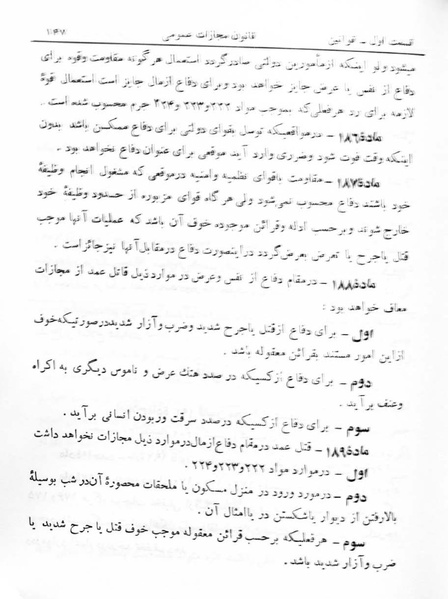 قسمت اول ـ قوانین قانون مجازات عمومی ۱۴۷
میشود ولو اینکه ازمأمورین دولتی صادرگردد استعمال هرگونه مقاومت وقوه برای
دفاع از نفس یا عرض جایز خواهد بود وبرای دفاع ازمال جایز است استعمال قوهٔ
لازمه برای رد هرفعلی‌که بموجب مواد ۲۲۲و۲۲۳و ۲۲۴ جرم محسوب شده است .
مادهٔ۱۸۶ - درمواقعیکه توسل بقوای دولتی برای دفاع ممکن باشد بدون
اینکه وقت فوت شود وضرری وارد آید موقعی برای عنوان دفاع نخواهد بود .
مادهٔ۱۸۷ـ مقاومت باقوای نظمیه وامنیه درموقعی که مشغول انجام وظیفهٔ
خود باشند دفاع محسوب نمی‌شود ولی هر گاه قوای مزبوره از حدود وظیفهٔ خود
خارج شوند وبرحسب ادله وقرائن موجوده خوف آن باشد که عملیات آنها موجب
قتل یاجرح یا تعرض بعرض‌گردد دراینصورت دفاع درمقابل‌آنها نیزجائزاست .
مادهٔ۱۸۸ - درمقام دفاع از نفس وعرض در موارد ذیل قاتل عمد از مجازات
معاف خواهد بود :
اول ـ برای دفاع ازقتل یاجرح شدید وضرب وآزار شدیددرصورتیکه‌خوف
ازاین امور مستند بقرائن معقوله باشد .
دوم ـ برای دفاع ازکسیکه در صدد هتك عرض و ناموس دیگری به اکراه
وعنف برآید .
سوم ـ برای دفاع ازکسیکه درصدد سرقت وربودن انسانی برآید .
مادهٔ۱۸۹ - قتل عمد درمقام دفاع ازمال‌درموارد ذیل مجازات نخواهد داشت
اول ـ درموارد مواد ۲۲۲و۲۲۳و۲۲۴ .
دوم ـ درمورد ورود در منزل مسکون یا ملحقات محصورهٔ آن‌در شب بوسیلهٔ
بالارفتن از دیوار یاشکستن در یاامثال آن .
سوم ـ هرفعلیکه برحسب قرائن معقوله موجب خوف قتل یا جرح شدید یا
ضرب وآزار شدید باشد .